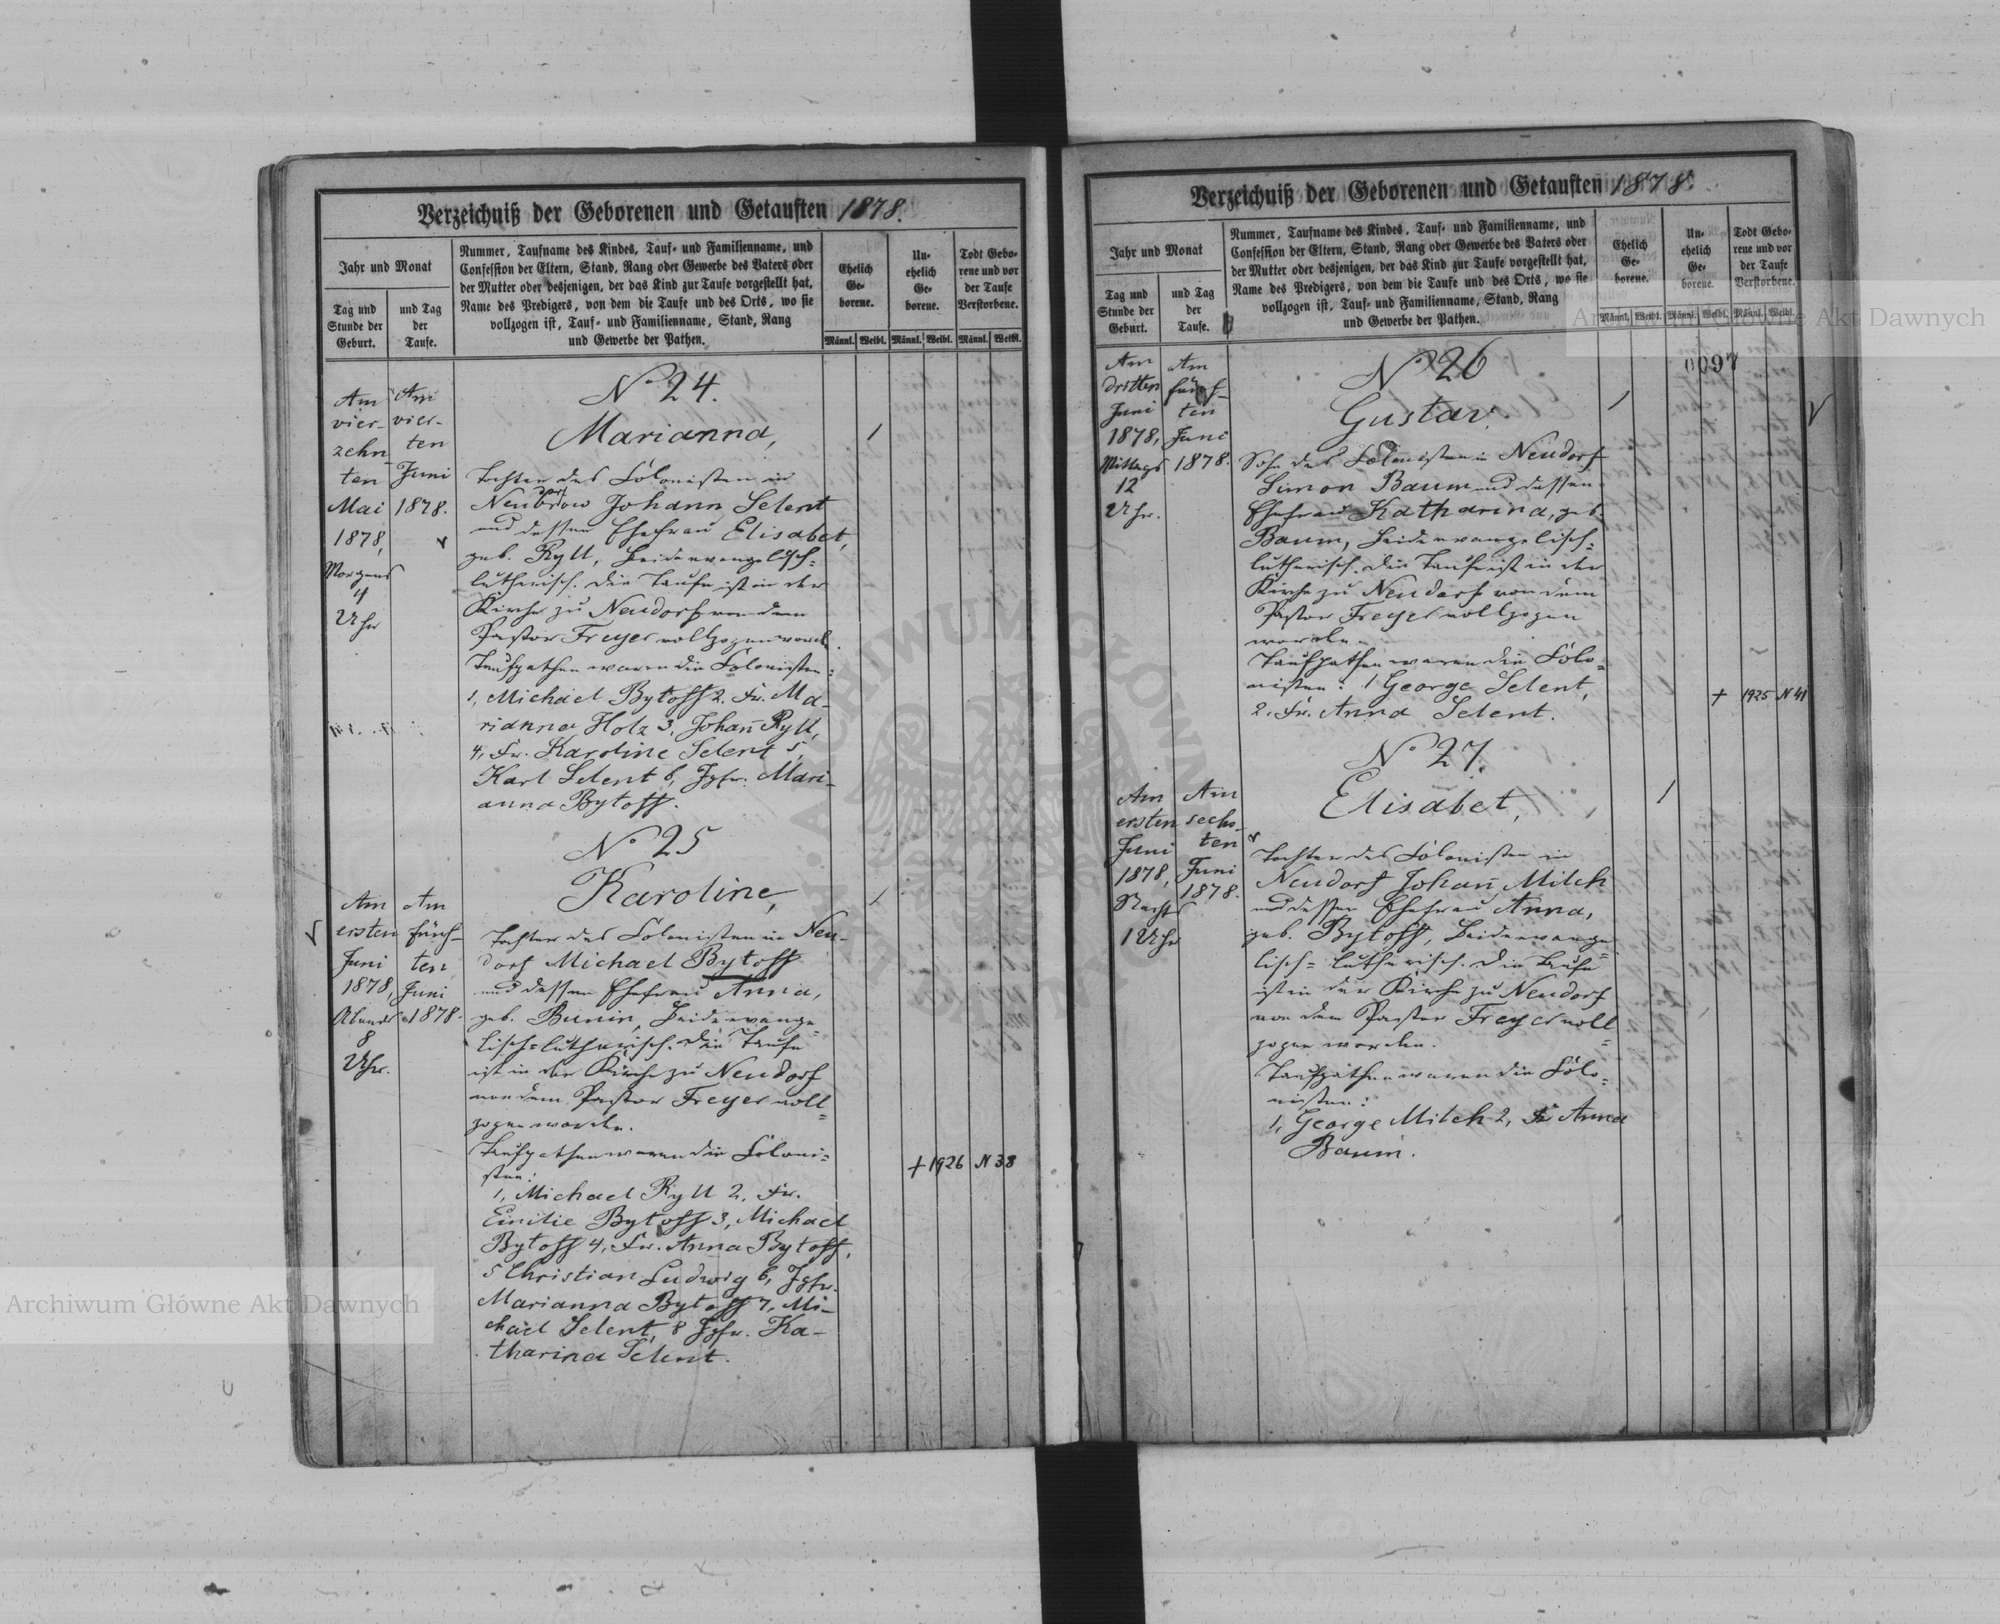 Verzeichniß der Geborenen und Getauften 1878.
Jahr und Monat
Tag und
Stunde der
Geburt.
und Tag
der
Taufe.
Nummer, Taufname des Kindes, Tauf- und Familienname, und
Confession der Eltern, Stand, Rang oder Gewerbe des Vaters oder
der Mutter oder desjenigen, der das Kind zur Taufe vorgestellt hat,
Name des Predigers, von dem die Taufe und des Orts, wo sie
vollzogen ist, Tauf- und Familienname, Stand, Rang
und Gewerbe der Pathen.
Ehelich
Ge-
borene.
Un-
ehelich
Ge-
borene.
Todt Gebo-
rene und vor
der Taufe
Verstorbene.
Männl. Weibl. Männl. Weibl. Männl. Weibl.
Am
vier-
zehn
ten
Mai
1878,
Morgens
4
Uhr
Am
vier-
ten
Juni
1878.
No 24.
Marianna,
Tochter des Colonisten in
Neudorf Johann Selent
und dessen Ehefrau Elisabet,
geb. Ryll, Beide evangelisch-
lutherisch. Die Taufe ist in der
Kirche zu Neudorf von dem
Pastor Freyer vollzogen word.
Taufpathen waren die Colonisten:
1, Michael Bytoff 2. Fr. Ma-
rianna Holz 3, Johann Ryll,
4, Fr. Karoline Selent 5,
Karl Selent 6, Jgfr. Mari-
anna Bytoff.
Am
ersten
Juni
1878,
Abends
8
Uhr.
Am
fünf-
ten
Juni
1878.
No 25
Karoline,
Tochter des Colonisten in Neu-
dorf Michael Bytoff
und dessen Ehefrau Anna,
geb. Bunin, Beide evange-
lisch-lutherisch. Die Taufe
ist in der Kirche zu Neudorf
von dem Pastor Freyer voll-
zogen worden.
Taufpathen waren die Coloni-
sten:
1, Michael Ryll 2, Fr.
Emilie Bytoff 3, Michael
Bytoff 4, Fr. Anna Bytoff,
5 Christian Ludwig 6, Jgfr.
Marianna Bytoff 7, Mi-
chael Selent, 8 Jgfr. Ka-
tharina Selent.
+ 1926 N 38
Verzeichniß der Geborenen und Getauften 1878.
Jahr und Monat
Tag und
Stunde der
Geburt.
und Tag
der
Taufe.
Nummer, Taufname des Kindes, Tauf- und Familienname, und
Confession der Eltern, Stand, Rang oder Gewerbe des Vaters oder
der Mutter oder desjenigen, der das Kind zur Taufe vorgestellt hat,
Name des Predigers, von dem die Taufe und des Orts, wo sie
vollzogen ist, Tauf- und Familienname, Stand, Rang
und Gewerbe der Pathen.
Ehelich
Ge-
borene.
Un-
ehelich
Ge-
borene.
Todt Gebo-
rene und vor
der Taufe
Verstorbene.
Männl. Weibl. Männl. Weibl. Männl. Weibl.
0097
Am
dritten
Juni
1878,
Mittags
12
Uhr.
Am
fünf-
ten
Juni
1878.
No 26
Gustav.
Sohn des Colonisten in Neudorf
Simon Baum und dessen
Ehefrau Katharina, geb.
Baum, Beide evangelisch-
lutherisch. Die Taufe ist in der
Kirche zu Neudorf von dem
Pastor Freyer vollzogen
worden.
Taufpathen waren die Colo-
nisten: 1 George Selent,
2. Fr. Anna Selent.
+ 1925 N 41
Am
ersten
Juni
1878,
Nachts
1 Uhr
Am
sechs-
ten
Juni
1878.
No 27.
Elisabet,
Tochter des Colonisten in
Neudorf Johann Milch
und dessen Ehefrau Anna,
geb. Bytoff, Beide evange-
lisch-lutherisch. Die Taufe
ist in der Kirche zu Neudorf
von dem Pastor Freyer voll-
zogen worden.
Taufpathen waren die Colo-
nisten:
1, George Milch 2, Fr Anna
Baum.
Archiwum Główne Akt Dawnych
Archiwum Główne Akt Dawnych